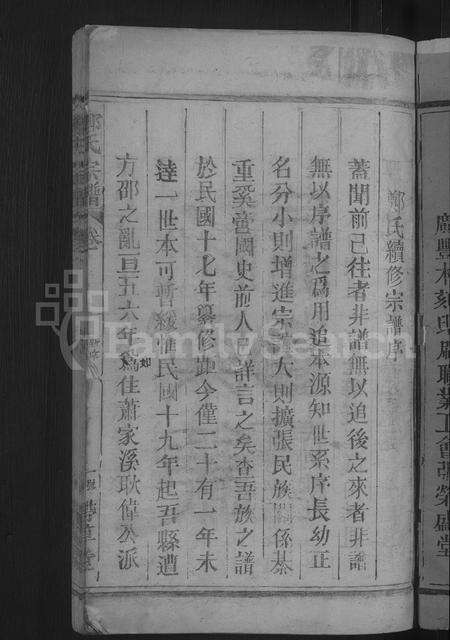 廣豐木刻印刷職業工會張榮盛堂
鄭氏續修宗譜序
蓋聞前已往者非譜無以追後之來者非譜
無以序譜之爲用追本源知世系序長幼正
名分小則增進宗 大則擴張民族關係綦
重奚啻國史前人已詳言之矣查吾族之譜
於民國十七年纂修距今僅二十有一年未
達一世本可暫緩惟民國十九年起吾縣遭
方邵之亂亘五六年爲住蕭家溪耿偉公派
如
鄭氏宗譜 卷一
FamilySearch